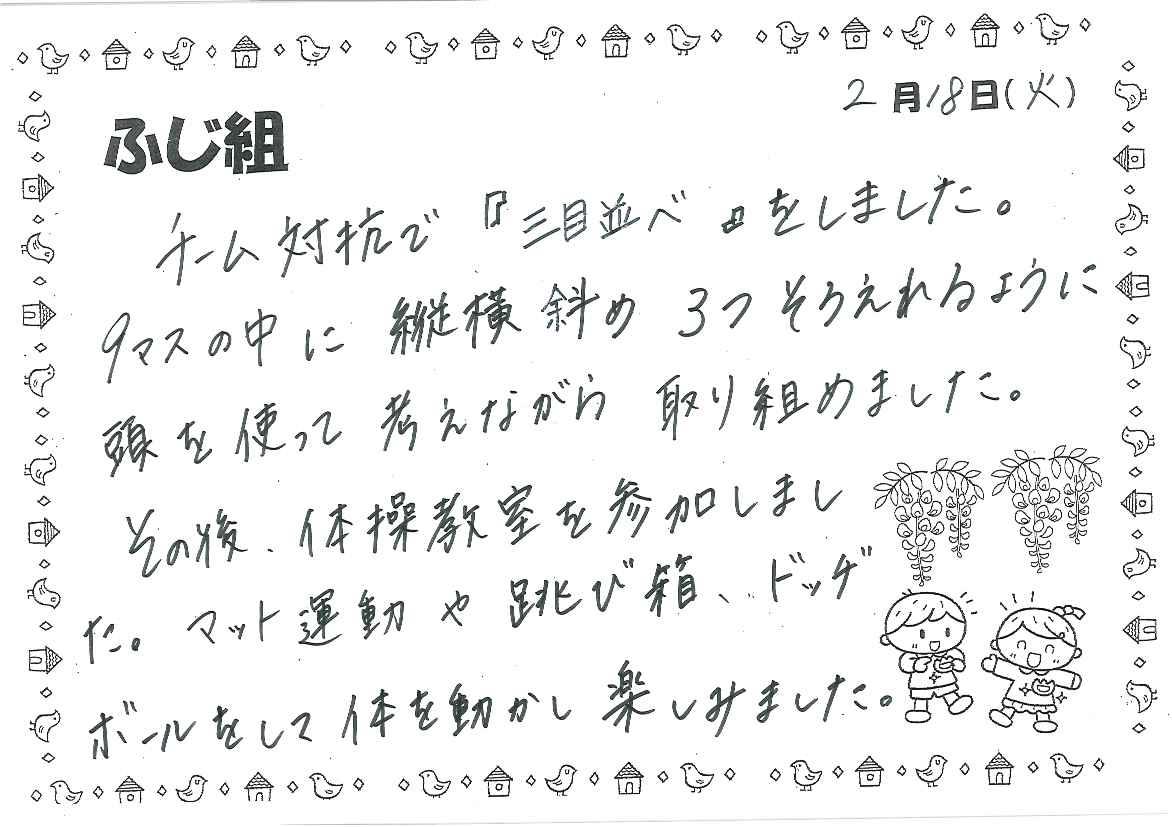 2月18日(火)
ふじ組
チーム対抗で『三目並べ』をしました。
9マスの中に縦横斜め3つそろえれるように
頭を使って考えながら取り組めました。
その後、体操教室を参加しまし
た。マット運動や跳び箱、ドッヂ
ボールをして体を動かし楽しみました。